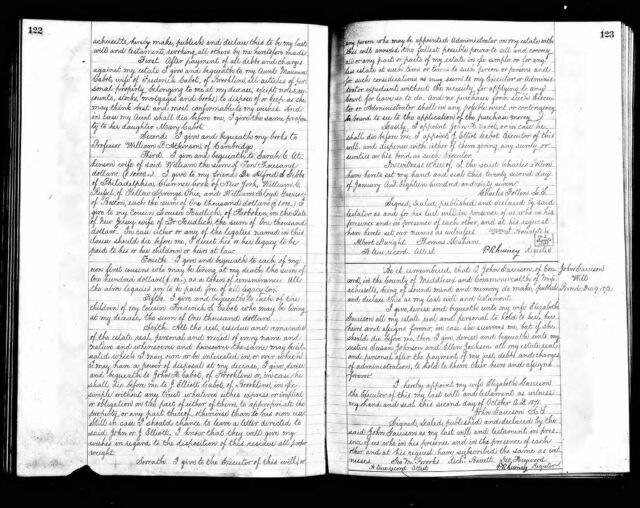 122
achusetts, hereby make, publish and declare this to be my last
will and testament, revoking all others by me heretofore made.
First. After payment of all debts and charges
against my estate I give and bequeath to my Aunt Marianne
Cabot, wife of Frederick Cabot, of Brookline all articles of per-
sonal property, belonging to me at my decease, except notes, ac-
counts, stocks, mortgages and books, to dispose of or keep as she
may think best and most conformable to my wishes. And
in case my Aunt shall die before me, I give the same prope-
ty to her daughter Mary Cabot.
Second. I give and bequeath my books to
Professor William P. Atkinson of Cambridge
Third. I give and bequeath to Sarah C. At-
kinson wife of said William the sum of Ten Thousand
dollars ($10000.). I give to my friends
of Philadelphia, of New York, William C.
of Yellow Springs Ohio, and William Lloyd Garrison
of Boston, each the sum of One thousand Dollars ($1000.). I
give to my cousin Louisa of Hoboken, in the State
of New Jersey wife of Dr. the sum of One thousand
dollars. In case either or any of the legatees named in this
clause should die before me, I direct his or her legacy to be
paid to his or her children or heirs at law.
Fourth. I give and bequeath to each of my
own first cousins who may be living at my death the sum of
One hundred dollars ($100.), as a token of remembrance. All
the above legacies are to be paid free of all legacy tax.
Fifth. I give and bequeath to each of the
children of my cousin Frederick S. Cabot who may be living
at my decease, the sum of One thousand dollars.
Sixth. All the rest, residue and remainder
of the estate, real, personal and mixed, of every name and
nature and wheresoever and howsoever the same may be situ-
ated which I may own or be interested in, or over which
I may have a power of disposal at my decease, I give, devise
and bequeath to John H. Cabot, of Brookline or, in case he
shall die before me to J. Elliott Cabot, of Brookline, in fee
simple without any trust whatever either express or implied
or obligation on the part of either of them, to appropriate the
property, or any part thereof, otherwise than to his own use.
Still in case I should chance to leave a letter directed to
said John or J. Elliott, I know that they will give my
wishes in regard to the disposition of this residue all proper
weight.
Seventh. I give to the Executor of this will, or
123
any person who may be appointed Administrator on my estate with
this will annexed, the fullest possible power to sell and convey
all or any part or parts of my estate in fee simple or for any
less estate at such time or times to such person or persons and
for such considerations as may seem to my Executor or Adminis-
trator expedient without the necessity for applying to any
Court for license to do. And no purchaser from such Execu-
tor or Administrator shall in any possible event or contingency
be bound to see to the application of the purchase money.
Lastly. I appoint John H. Cabot, or in case he
shall die before me, I appoint J. Elliott Cabot Executor of this
will, and dispense with either of them giving any surety or
sureties on his bond as such Executor.
In witness whereof I, the said Charles Follen
have hereto set my hand and seal this twenty second day
of January A.D. Eighteen hundred and sixty seven
Charles Follen L.S.
Signed, sealed, published and declared by said
testator as and for his last will in presence of us who in his
presence and in presence of each other, and at his request
have hereto set our names as witnesses.
Albert Dwight Thomas
A true record Attest Register
Be it remembered that I John Garrison, of Con-
cord, in the County of Middlesex and Commonwealth of Mass-
achusetts, being of sound mind and memory do make, publish
and declare this as my last will and testament.
John Garrison
Will
I give, devise and bequeath unto my wife Elizabeth
Garrison all my estate real and personal to hold to her, her
heirs and assigns forever, in case she survives me, but if she
should die before me, then I give, devise and bequeath unto my
sisters Susan Johnson and Ellen Jackson all my estate, real
and personal after the payment of my just debts and charges
of administration, to hold to them their heirs and assigns
forever.
I hereby appoint my wife Elizabeth Garrison
the Executor of this my last will and testament as witness
my hand and seal this second day of October A.D. 1871
John Garrison L.S.
Signed, sealed, published and declared by the
said John Garrison as my last will and testament in pres-
ence of us who in his presence and in the presence of each
other and at his request have subscribed the same as wit-
nesses. Geo. M. Brooks Geo. Heywood
A true record Attest Register